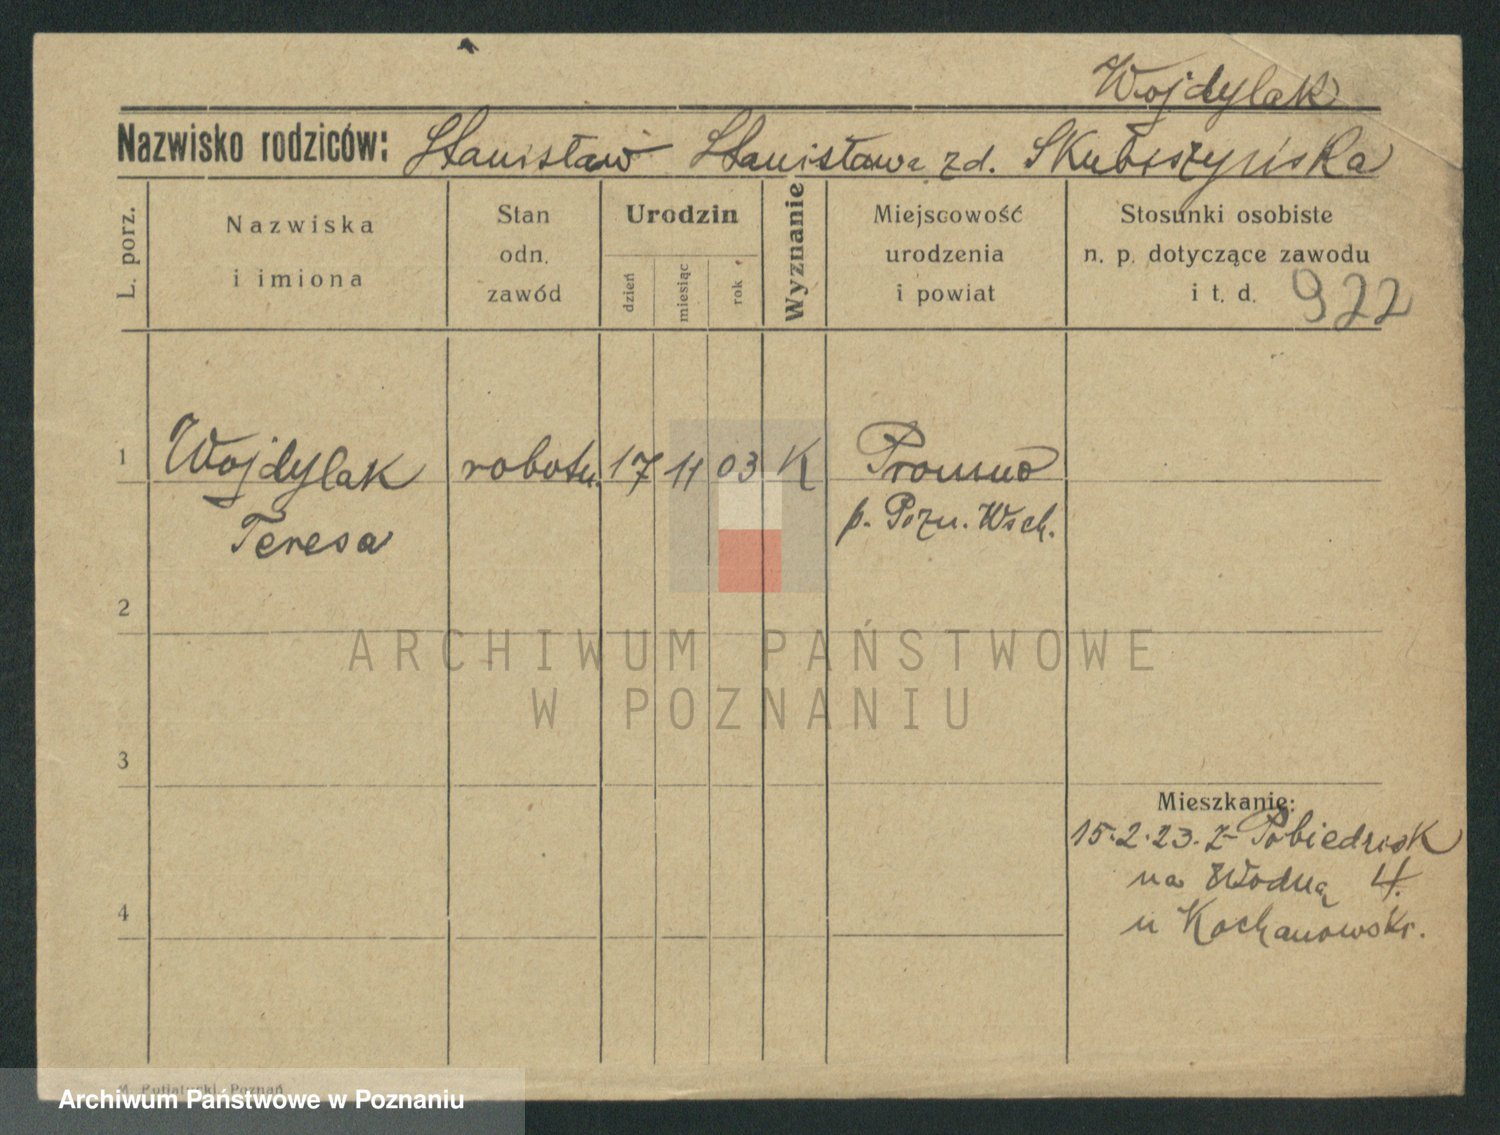 Wojdylak
Nazwisko rodziców: Stanisław Stanisława zd. Skubiszyńska
L. porz.
Nazwiska
i imiona
Stan
odn.
zawód
Urodzin
dzień
miesiąc
rok
Wyznanie
Miejscowość
urodzenia
i powiat
Stosunki osobiste
n. p. dotyczące zawodu
i t. d. 922
1 Wojdylak robotn. 17 11 03 K Promno
Teresa p. Pozn. Wsch.
2
3
4
ARCHIWUM PAŃSTWOWE
W POZNANIU
Mieszkanie:
15.2.23. z Pobiedzisk
na Wodną 4.
u Kochanowski.
Poznań
Archiwum Państwowe w Poznaniu